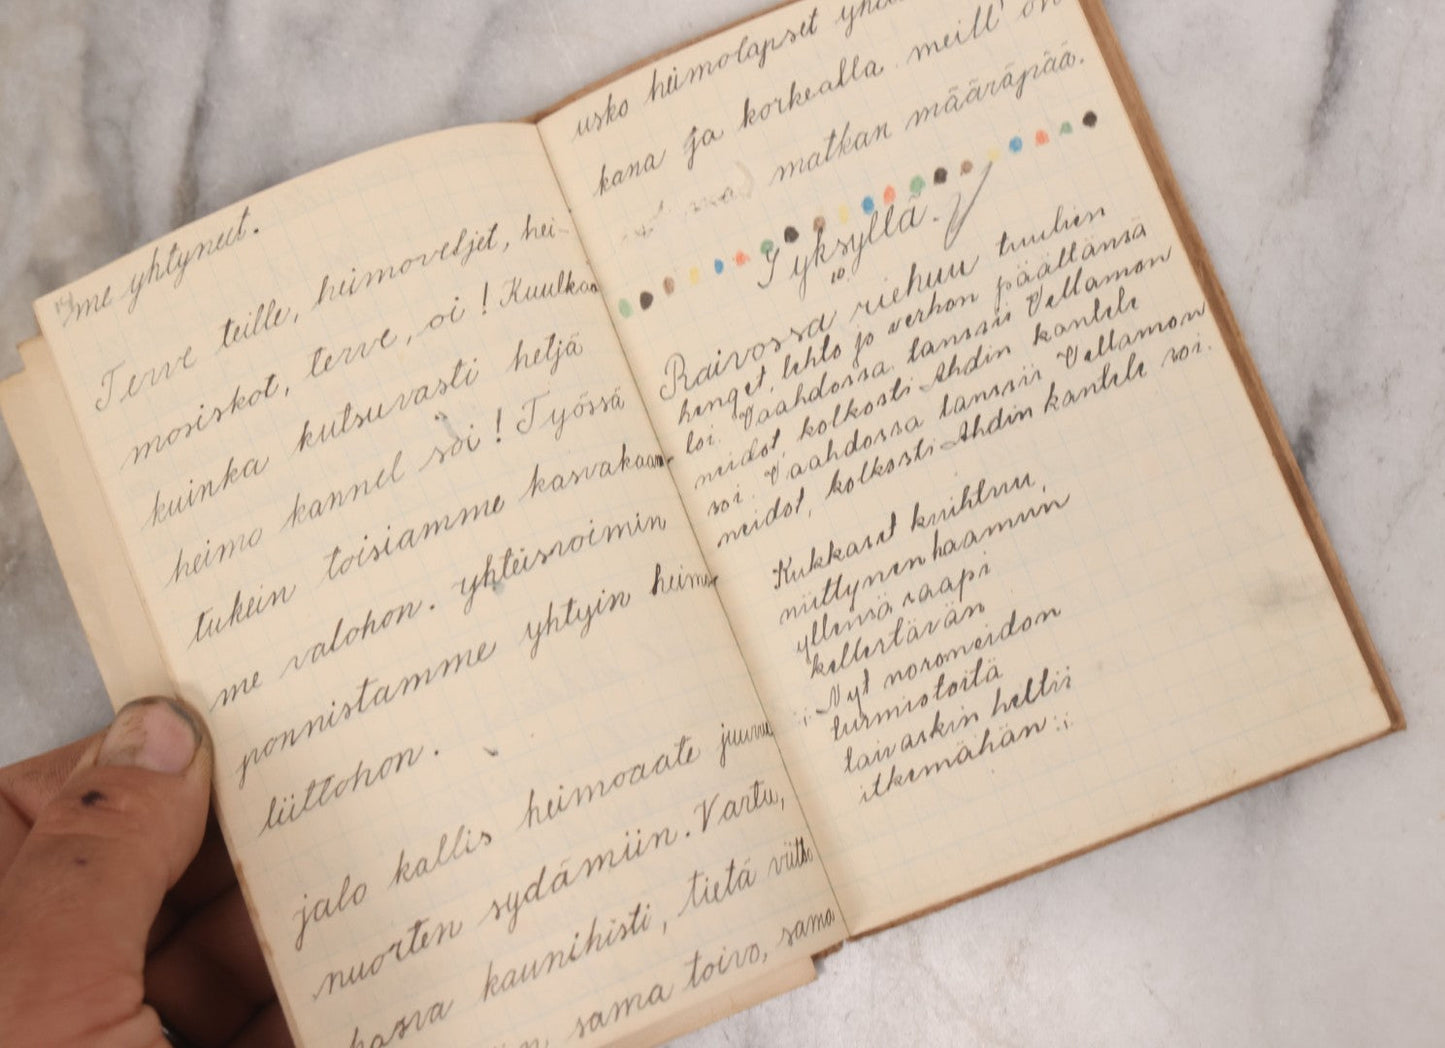 me yhtyneet.
Terve teille, heimoveljet, hei-
mosiskot, terve, oi! Kuulkaa
kuinka kutsuvasti heljä
heimo kannel soi! Työssä
tukein toisiamme kasvakaam-
me valohon. yhteisvoimin
ponnistamme yhtyin heimo
liittohon.
jalo kallis heimoaate juurru
nuorten sydämiin. Vartu,
kasva kaunihisti, tietä viitto
sama toivo, sama
usko heimolapset
kana ja korkealla meill' on
matkan määräpää.
Syksyllä.
10.
Raivossa riehuu tuulien
henget, lehto jo verhon päältänsä
loi. Vaahdossa tanssii Vellamon
neidot, kolkosti Ahdin kantele
soi. Vaahdossa tanssii Vellamon
neidot, kolkosti Ahdin kantele soi.
Kukkaset kuihtuu,
niittynen haamun
yllensä saapi
kellertävän
:; Nyt noromeidon
turmiotoita
taivaskin heltii
itkemähän :;